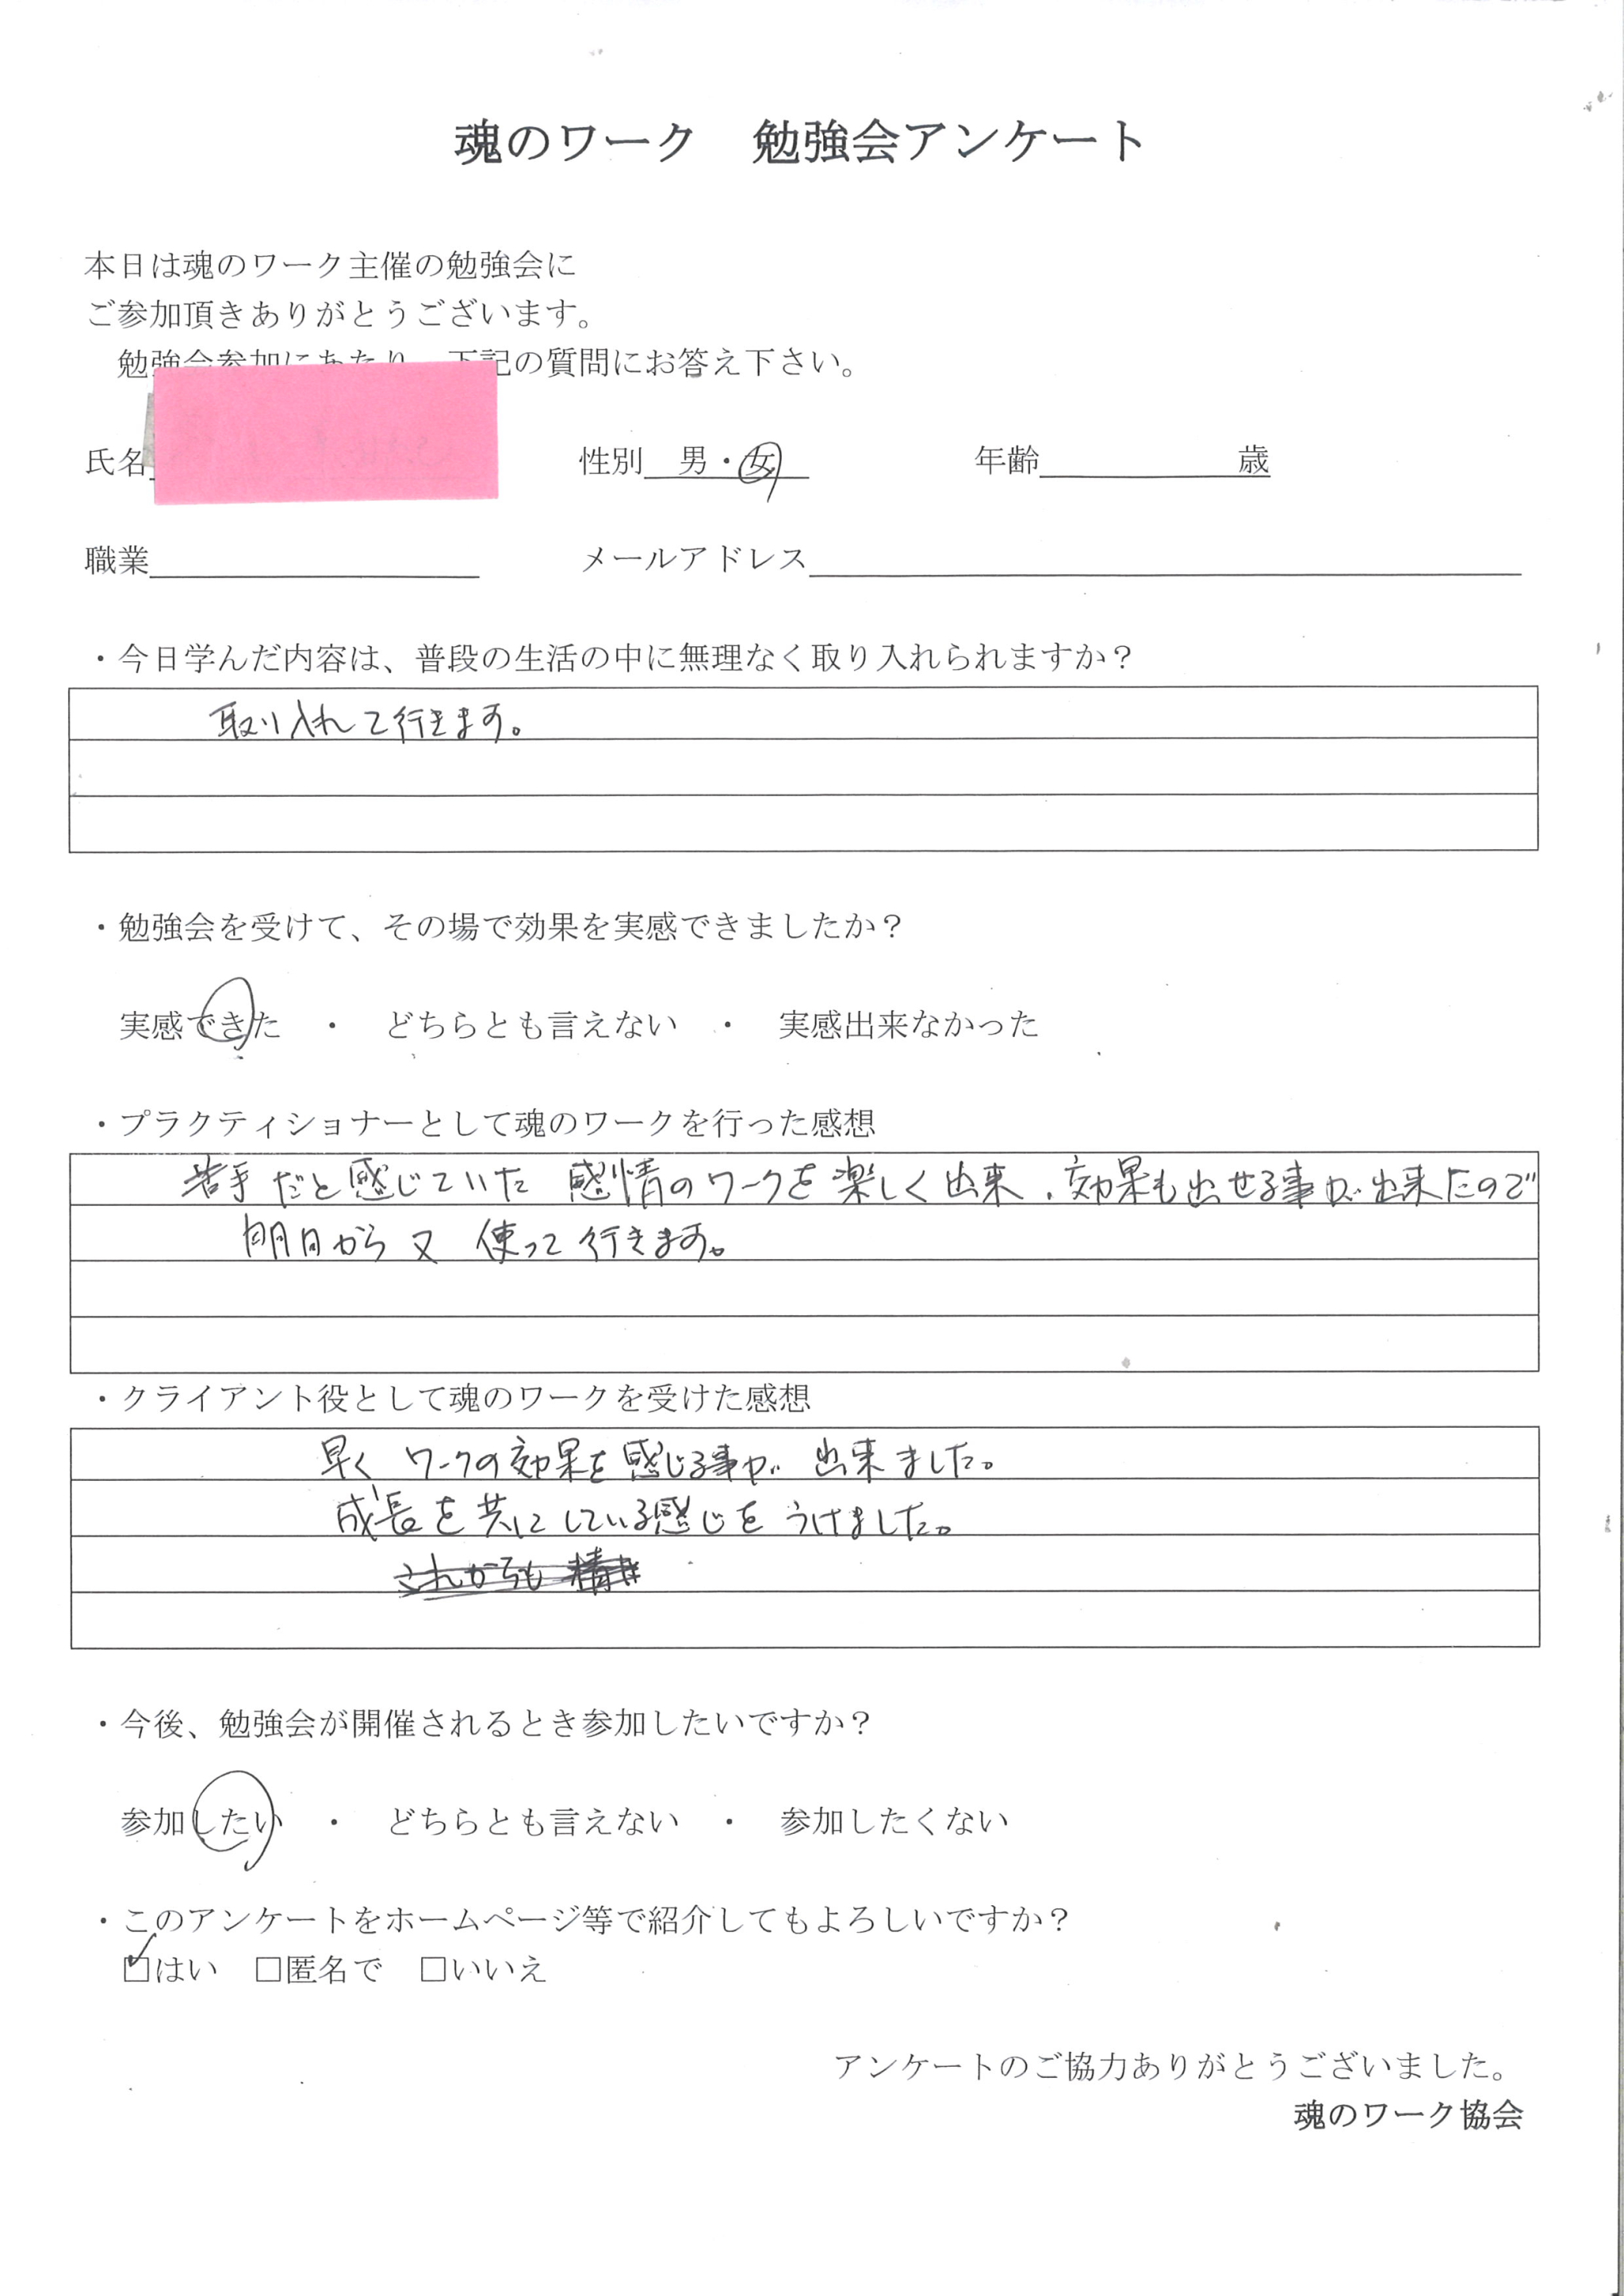 魂のワーク 勉強会アンケート
本日は魂のワーク主催の勉強会に
ご参加頂きありがとうございます。
勉強会参加にあたり、下記の質問にお答え下さい。
氏名 性別 男・女 年齢 歳
職業 メールアドレス
・今日学んだ内容は、普段の生活の中に無理なく取り入れられますか？
取り入れて行きます。
・勉強会を受けて、その場で効果を実感できましたか？
実感できた ・ どちらとも言えない ・ 実感出来なかった
・プラクティショナーとして魂のワークを行った感想
苦手だと感じていた 感情のワークを楽しく出来、効果も出せる事が出来たので
明日から又 使って行きます。
・クライアント役として魂のワークを受けた感想
早く ワークの効果を感じる事が 出来ました。
成長を共にしている感じを うけました。
これからも
・今後、勉強会が開催されるとき参加したいですか？
参加したい ・ どちらとも言えない ・ 参加したくない
・このアンケートをホームページ等で紹介してもよろしいですか？
☑はい □匿名で □いいえ
アンケートのご協力ありがとうございました。
魂のワーク協会